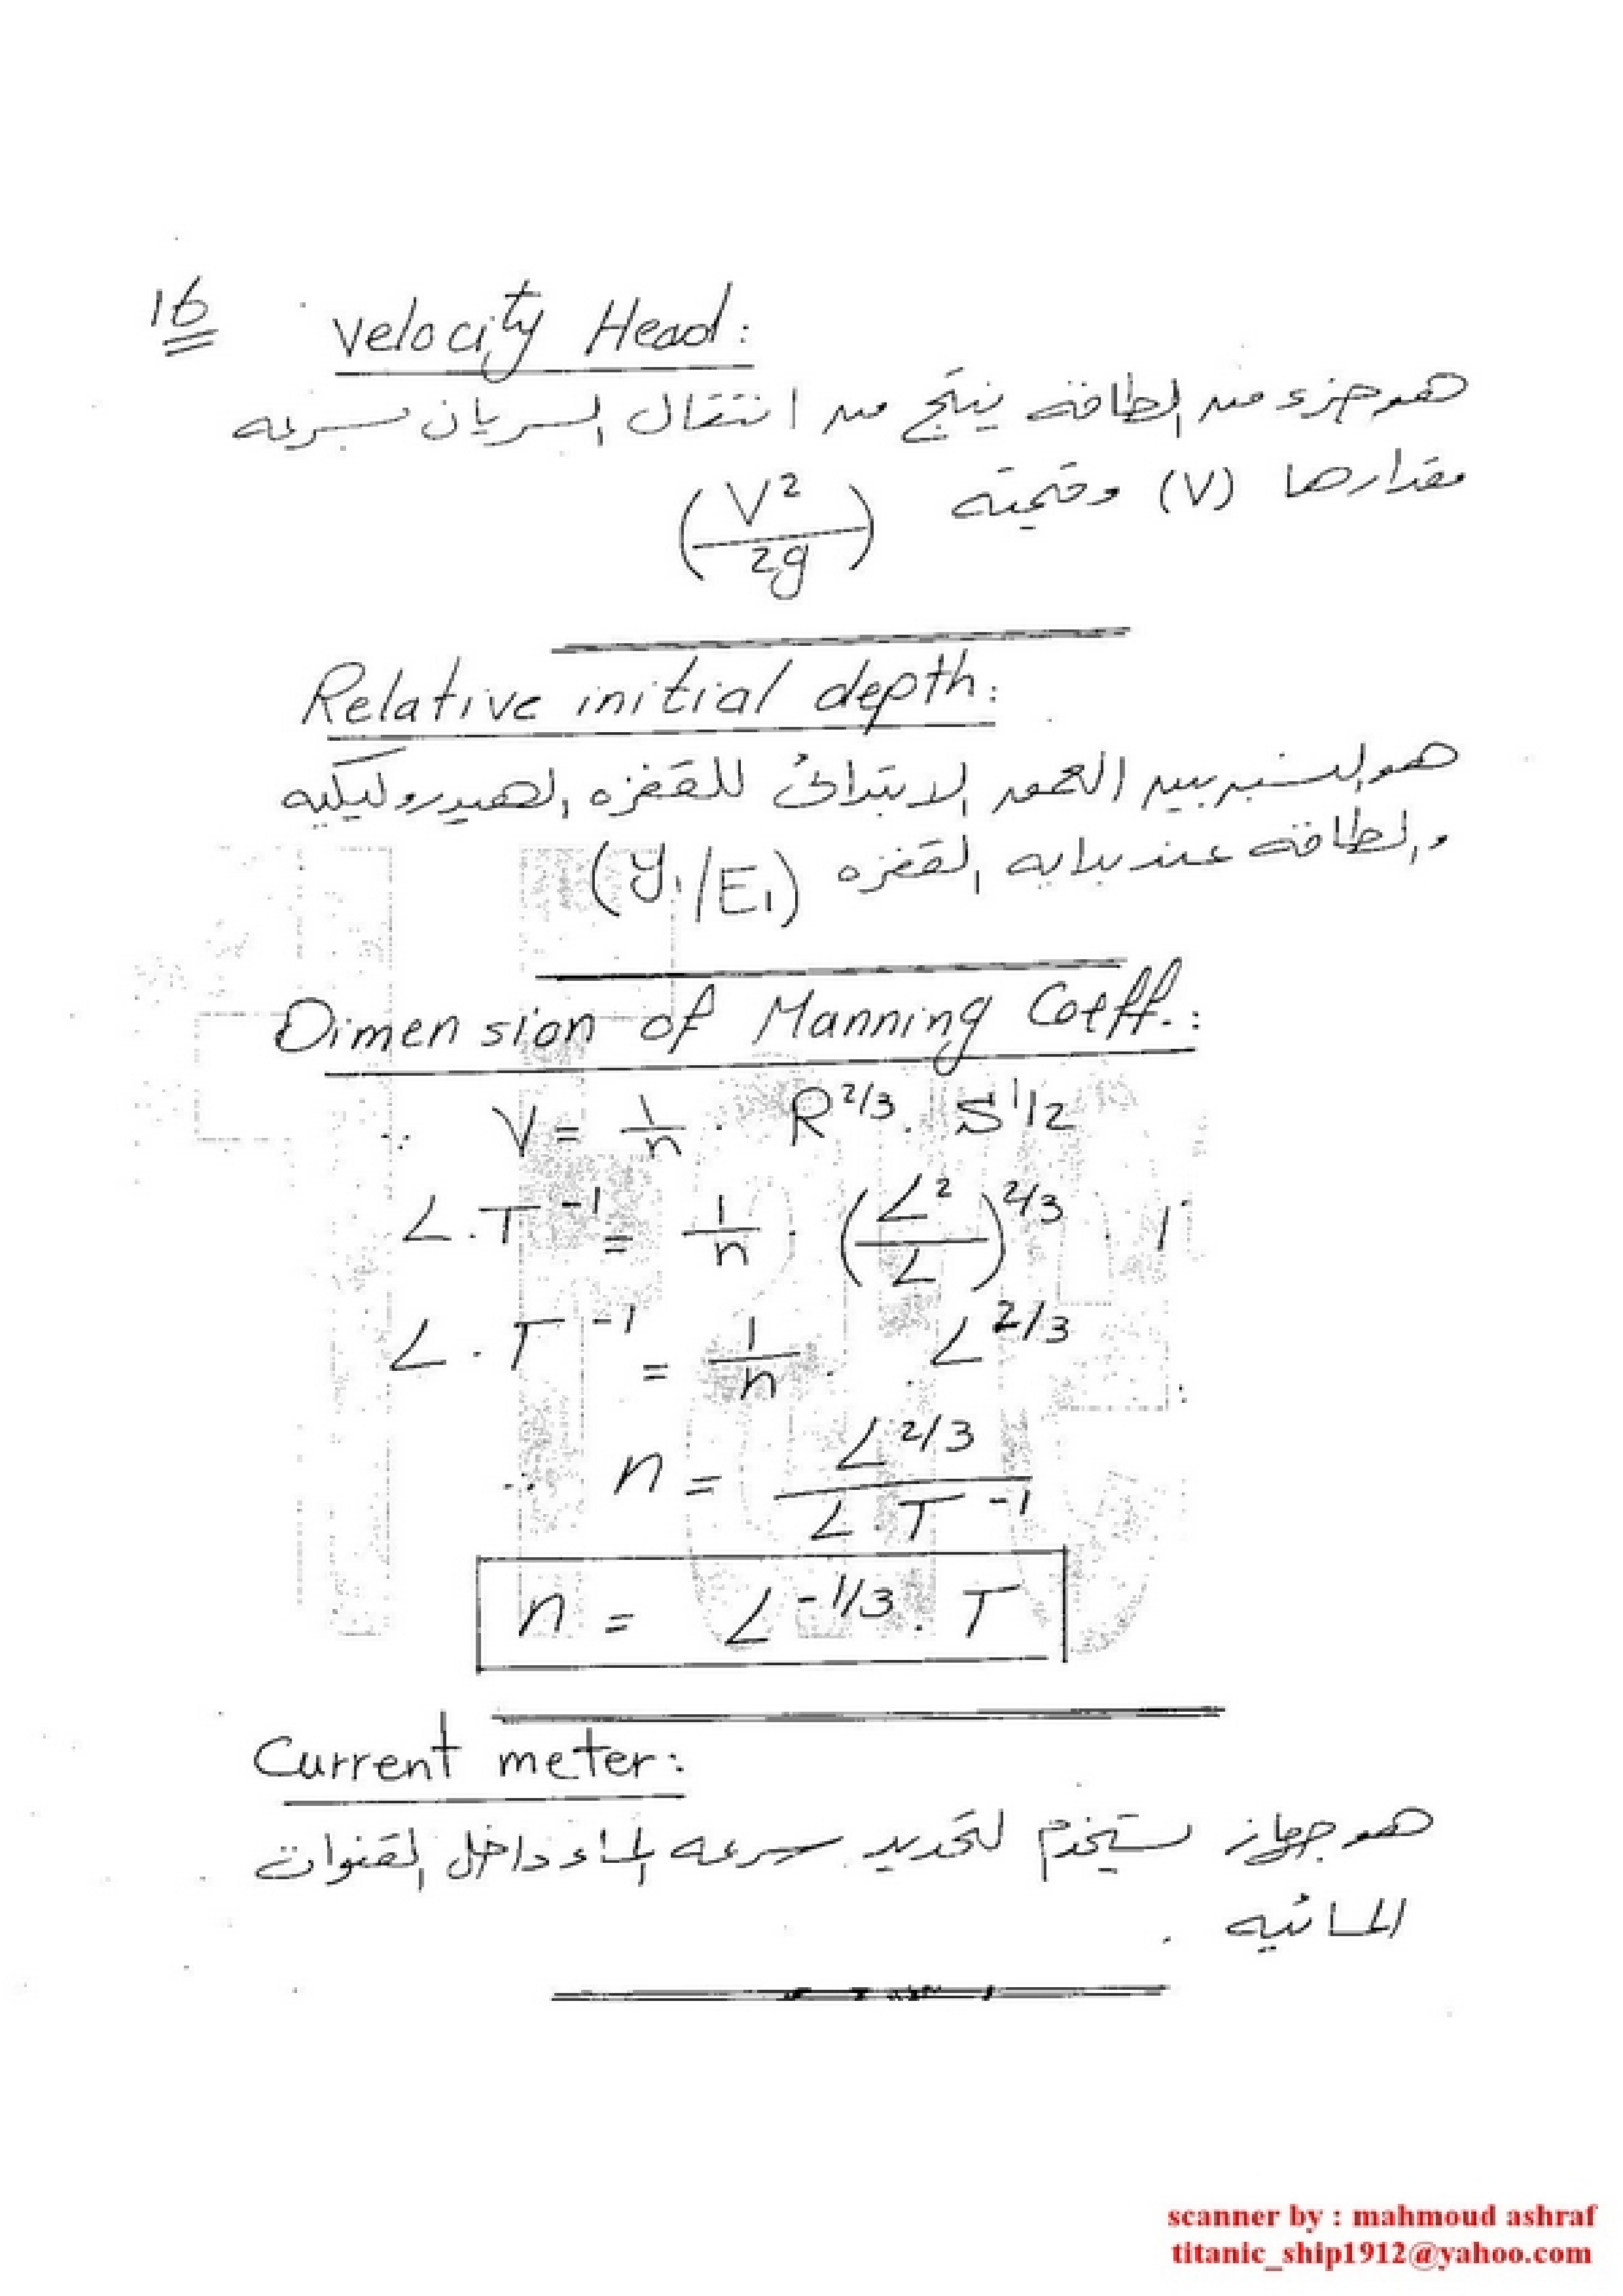 16
Velocity Head:
هو جزء من الطاقة ينتج من انتقال السريان بسرعه
مقدارها (V) وقيمته (V²/2g)
Relative initial depth:
هو النسبه بين العمق الابتدائى للقفزه الهيدروليكيه
والطاقة عند بدايه القفزه (y₁/E₁)
Dimension of Manning Coeff.:
∵ V = 1/n . R^2/3 . S^1/2
L.T^-1 = 1/n . (L²/L)^2/3 . 1
L.T^-1 = 1/n . L^2/3
∴ n = L^2/3 / L.T^-1
n = L^-1/3 . T
Current meter:
هو جهاز يستخدم لتحديد سرعه الماء داخل القنوات
المائيه .
scanner by : mahmoud ashraf
titanic_ship1912@yahoo.com